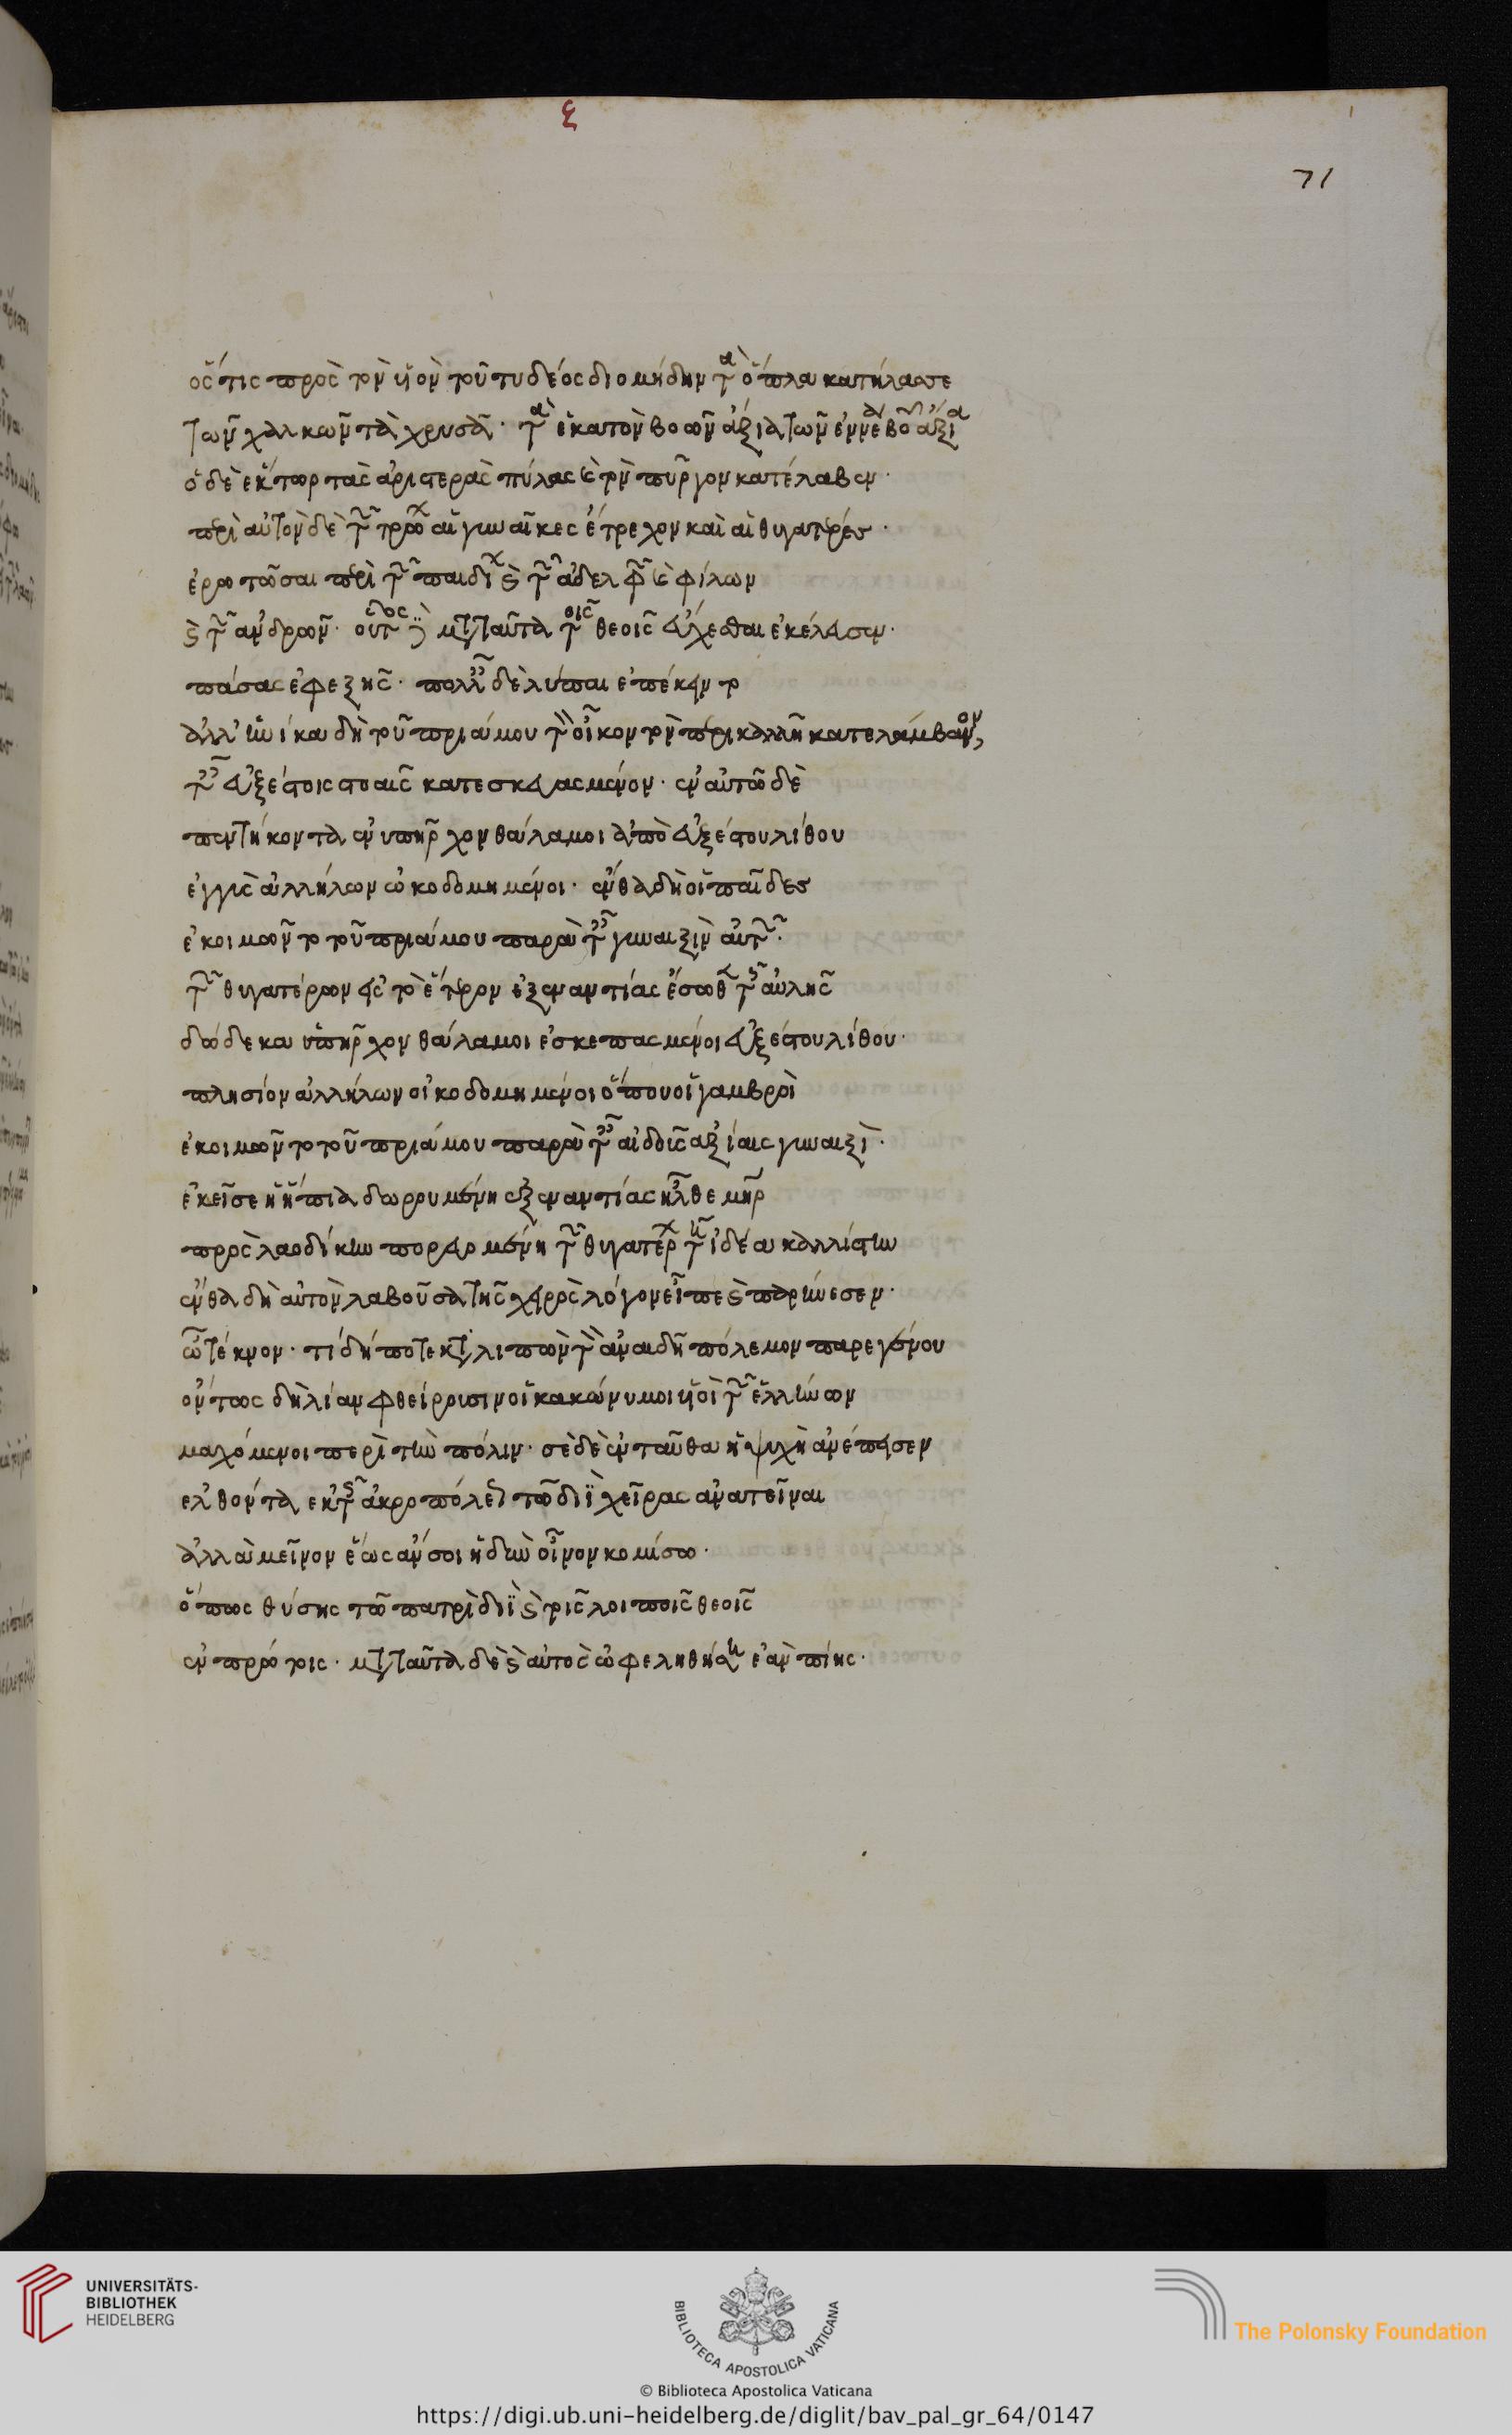 ξ
71
ὅστις πρὸς τὸν υἱὸν τοῦ τυδέος διομήδην τὰ ὅπλα κατήλλαξε
τῶν χαλκῶν τὰ χρυσᾶ· τὰ ἑκατὸν βοῶν ἄξια τῶν ἐννέα βοῶν ἄξια
ὁ δὲ ἕκτωρ τὰς ἀριστερὰς πύλας καὶ τὸν πύργον κατέλαβεν·
περὶ αὐτὸν δὲ τῶν τρώων αἱ γυναῖκες ἔτρεχον καὶ αἱ θυγατέρες·
ἐρωτῶσαι περὶ τῶν παίδων καὶ τῶν ἀδελφῶν καὶ φίλων
καὶ τῶν ἀνδρῶν· οὗτος μετὰ ταῦτα τοῖς θεοῖς εὔχεσθαι ἐκέλευσεν·
πάσας ἐφεξῆς· πολλαῖς δὲ λύπαι ἐπέκειντο
ἀλλ' ἡνίκα δὴ τοῦ πριάμου τὸν οἶκον τὸν περικαλλῆ κατελάμβανον,
ταῖς εὐξέστοις στοαῖς κατεσκευασμένον· ἐν αὐτῶ δὲ
πεντήκοντα ἐνυπῆρχον θάλαμοι ἀπὸ εὐξέστου λίθου
ἐγγὺς ἀλλήλων ὠκοδομημένοι· ἔνθα δὴ οἱ παῖδες
ἐκοιμῶντο τοῦ πριάμου παρὰ ταῖς γυναιξὶν αὐτῶν·
τῶν θυγατέρων εἰς τὸ ἕτερον ἐξεναντίας ἔσωθεν τῆς αὐλῆς
δώδεκα ὑπῆρχον θάλαμοι ἐσκεπασμένοι εὐξέστου λίθου·
πλησίον ἀλλήλων οἰκοδομημένοι ὅπου οἱ γαμβροὶ
ἐκοιμῶντο τοῦ πριάμου παρὰ ταῖς αἰδοῖς ἀξίαις γυναιξὶ·
ἐκεῖσε ἡ ἤπια δωρουμένη ἐξεναντίας ἦλθε μήτηρ
πρὸς λαοδίκην πορευομένη τῶν θυγατέρων τὴν ἰδέα καλλίστην
ἔνθα δὴ αὐτὸν λαβοῦσα τῆς χειρὸς λόγον εἶπε καὶ παρήνεσεν·
ὦ τέκνον· τί δήποτε καταλιπὼν τὸν ἀναιδῆ πόλεμον παρεγένου
ὄντως δὴ λίαν φθείρουσιν οἱ κακώνυμοι υἱοὶ τῶν ἑλλήνων
μαχόμενοι περὶ τὴν πόλιν· σὲ δὲ ἐνταῦθα ἡ ψυχὴ ἀνέπεισεν
ἐλθόντα ἐκ τῆς ἀκροπόλεως τῶ διῒ χεῖρας ἀνατεῖναι
ἀλλὰ μεῖνον ἕως ἄν σοι ἡδὺν οἶνον κομίσω·
ὅπως θύσης τῶ πατρὶ διῒ καὶ τοῖς λοιποῖς θεοῖς
ἐν πρώτοις· μετὰ ταῦτα δὲ καὶ αὐτὸς ὠφεληθήση ἐὰν πίης·
UNIVERSITÄTS-
BIBLIOTHEK
HEIDELBERG
BIBLIOTECA APOSTOLICA VATICANA
© Biblioteca Apostolica Vaticana
The Polonsky Foundation
https://digi.ub.uni-heidelberg.de/diglit/bav_pal_gr_64/0147